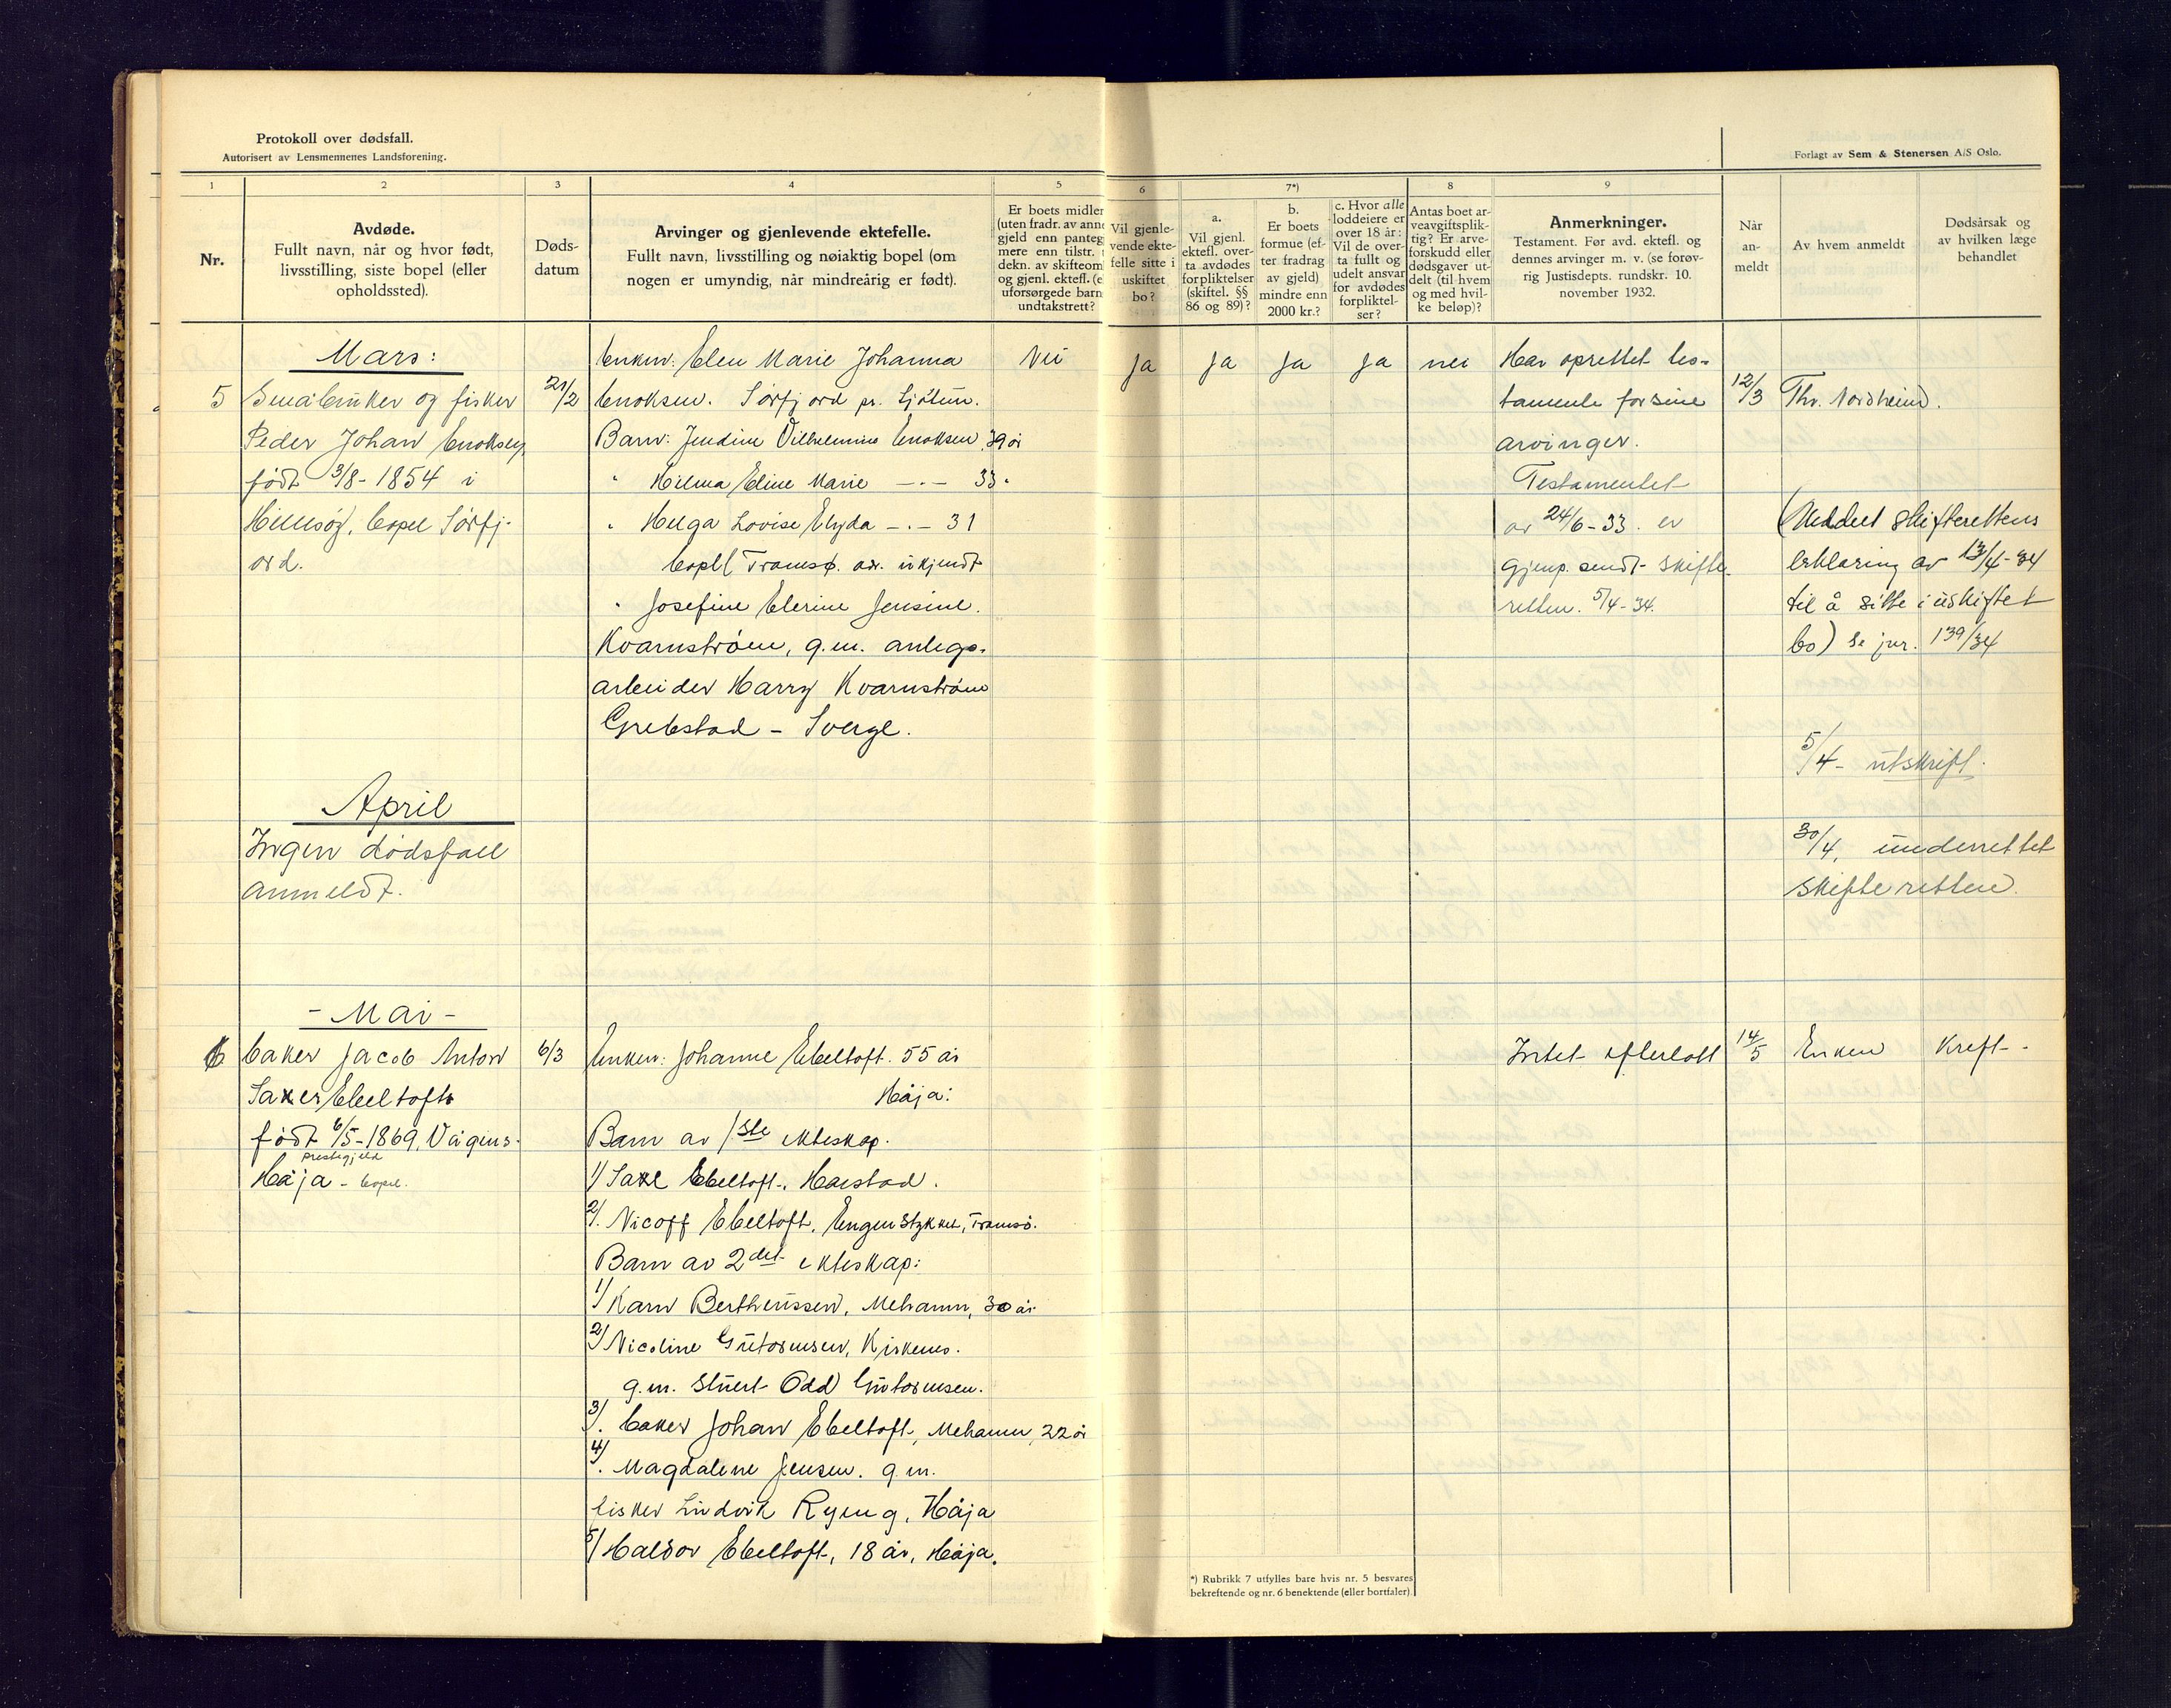 Protokoll over dødsfall.
Autorisert av Lensmennenes Landsforening.
Forlagt av Sem & Stenersen A/S Oslo.
1 2 3 4 5 6 7*) 8 9
Nr.
Avdøde.
Fullt navn, når og hvor født,
livsstilling, siste bopel (eller
opholdssted).
Døds-
datum
Arvinger og gjenlevende ektefelle.
Fullt navn, livsstilling og nøiaktig bopel (om
nogen er umyndig, når mindreårig er født).
Er boets midler
(uten fradr. av anne
gjeld enn panteg
mere enn tilstr.
dekn. av skifteom
og gjenl. ektefl. (e
uforsørgede barn
undtakstrett?
Vil gjenle-
vende ekte-
felle sitte i
uskiftet
bo?
a.
Vil gjenl.
ektefl. over-
ta avdødes
forpliktelser
(skiftel. §§
86 og 89)?
b.
Er boets
formue (ef-
ter fradrag
av gjeld)
mindre enn
2000 kr.?
c. Hvor alle
loddeiere er
over 18 år:
Vil de over-
ta fullt og
udelt ansvar
for avdødes
forpliktel-
ser?
Antas boet ar-
veavgiftsplik-
tig? Er arve-
forskudd eller
dødsgaver ut-
delt (til hvem
og med hvil-
ke beløp)?
Anmerkninger.
Testament. Før avd. ektefl. og
dennes arvinger m. v. (se forøv-
rig Justisdepts. rundskr. 10.
november 1932.
Når
an-
meldt
Av hvem anmeldt
Dødsårsak og
av hvilken læge
behandlet
Mars:
5 Småbruker og fisker
Peder Johan Enoksen,
født 3/8-1854 i
Hillesøy, bopel Sørfj-
ord.
21/2
Enken: Elen Marie Johanna
Enoksen. Sørfjord pr.
Barn: Jendine Vilhelmine Enoksen 39 år
" Hilma Eline Marie —.— 33 "
" Helga Lovise Elyda —.— 31
bopel Tromsø. adr. ukjendt
" Josefine Elerine Jensine.
Kvarnstrøm, g.m. anlegs-
arbeider Harry Kvarnstrøm
Grebstad - Sverge.
Nei Ja Ja Ja Ja nei
Har oprettet tes-
tamente for sine
arvinger.
Testamentet
av 24/6-33. er
gjenp. sendt skifte-
retten. 5/4-34.
12/3 Thr. Nordheim.
(Meddelt skifterettens
erklæring av 13/4-34
til å sitte i uskiftet
bo) Se jnr. 139/34
5/4- utskrift.
April
Ingen dødsfall
anmeldt.
30/4, underrettet
skifteretten.
- Mai -
6 baker Jacob Anton
Saxe Ebeltoft
født 6/5-1869, Vågens-
prestegjeld
Håja - bopel.
6/3
Enken: Johanne Ebeltoft. 55 år
Håja:
Barn av 1ste ekteskap.
1/ Saxe Ebeltoft, Harstad.
2/. Nicoff Ebeltoft, Engenstykket, Tromsø.
Barn av 2det ekteskap:
1/ Karn Bertheussen, Mehamn, 30 år
2/ Nicoline Gutormsen, Kirkenes.
g.m. stuert Odd Gutormsen.
3/. baker Johan Ebeltoft, Mehamn, 22 år
4/. Magdalene Jensen. g.m.
fisker Ludvik Ryeng, Håja
5/ Haldor Ebeltoft, 18 år, Håja.
Intet efterlatt
14/5 Enken Kreft.
*) Rubrikk 7 utfylles bare hvis nr. 5 besvares
bekreftende og nr. 6 benektende (eller bortfaler).